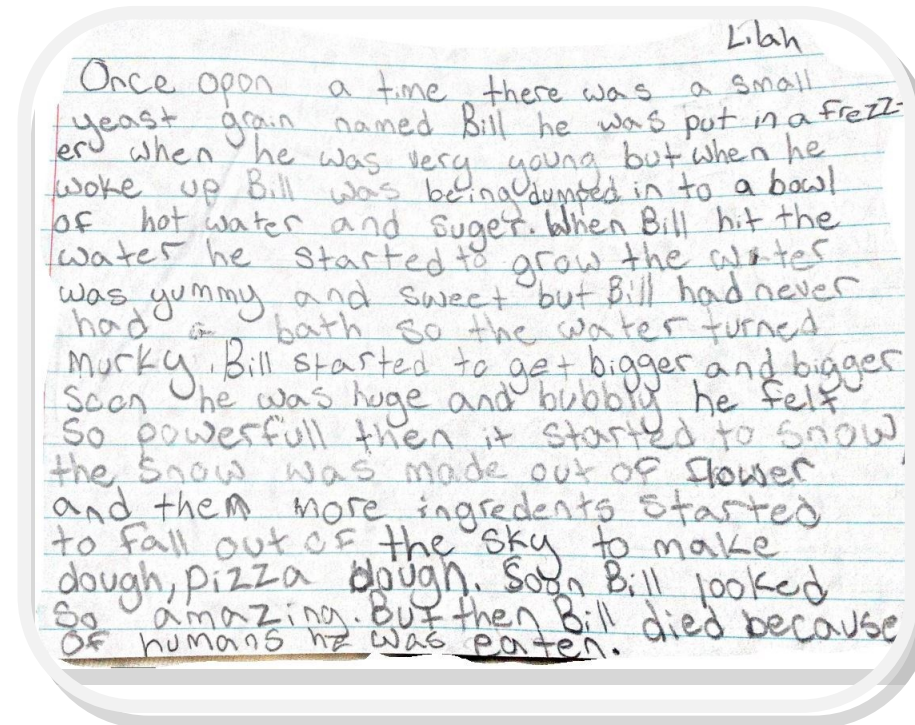 Lilah
Once opon a time there was a small
yeast grain named Bill he was put in a frezz-
er when he was very young but when he
woke up Bill was being dumped in to a bowl
of hot water and suger. When Bill hit the
water he started to grow the water
was yummy and sweet but Bill had never
had a bath so the water turned
murky. Bill started to get bigger and bigger
Soon he was huge and bubbly he felt
so powerfull then it started to snow
the snow was made out of flower
and them more ingredents started
to fall out of the sky to make
dough, pizza dough. Soon Bill looked
so amazing. But then Bill died because
of humans he was eaten.